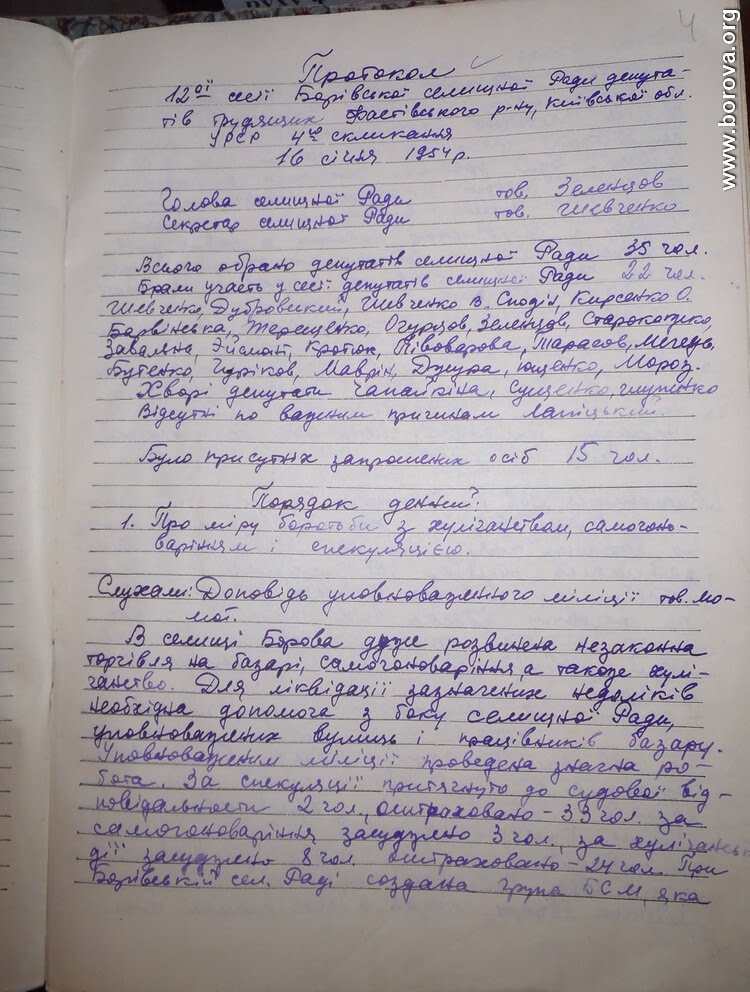 4
www.borova.org
Протокол
12ої сесії Борівської селищної Ради депута-
тів трудящих Фастівського р-ну, Київської обл.
УРСР 4го скликання
16 січня 1954 р.
Голова селищної Ради тов. Зеленцов
Секретар селищної Ради тов. Шевченко
Всього обрано депутатів селищної Ради 35 чол.
Брали участь у сесії депутатів селищної Ради 22 чол.
Шевченко, Дубровський, Шевченко В. Сподін, Кирієнко О.
Барвінська, Терещенко, Огурцов, Зеленцов,
Завальна, Кротюк, Півоварова, Тарасов,
Бутенко, Гуріков, Маврін, Дзюра, Ющенко, Мороз.
Хворі депутати Чапайкіна, Сущенко,
Відсутні по важним причинам Лапіцький.
Було присутніх запрошених осіб 15 чол.
Порядок денний:
1. Про міру боротьби з хуліганством, самогоно-
варінням і спекуляцією.
Слухали: Доповідь уповноваженного міліції тов. Мо-
мот.
В селищі Борова дуже розвинена незаконна
торгівля на базарі, самогоноваріння, а також хулі-
ганство. Для ліквідації зазначених недоліків
необхідна допомога з боку селищної Ради,
уповноважених вулиць і працівників базару.
Уповноваженим міліції проведена значна ро-
бота. За спекуляції притягнуто до судової від-
повідальности 2 чол., оштраховано - 33 чол. за
самогоноваріння засуджено 3 чол., за хуліганськ
дії засуджено 8 чол. оштраховано - 24 чол. При
Борівській сел. Раді создана група БСМ, яка